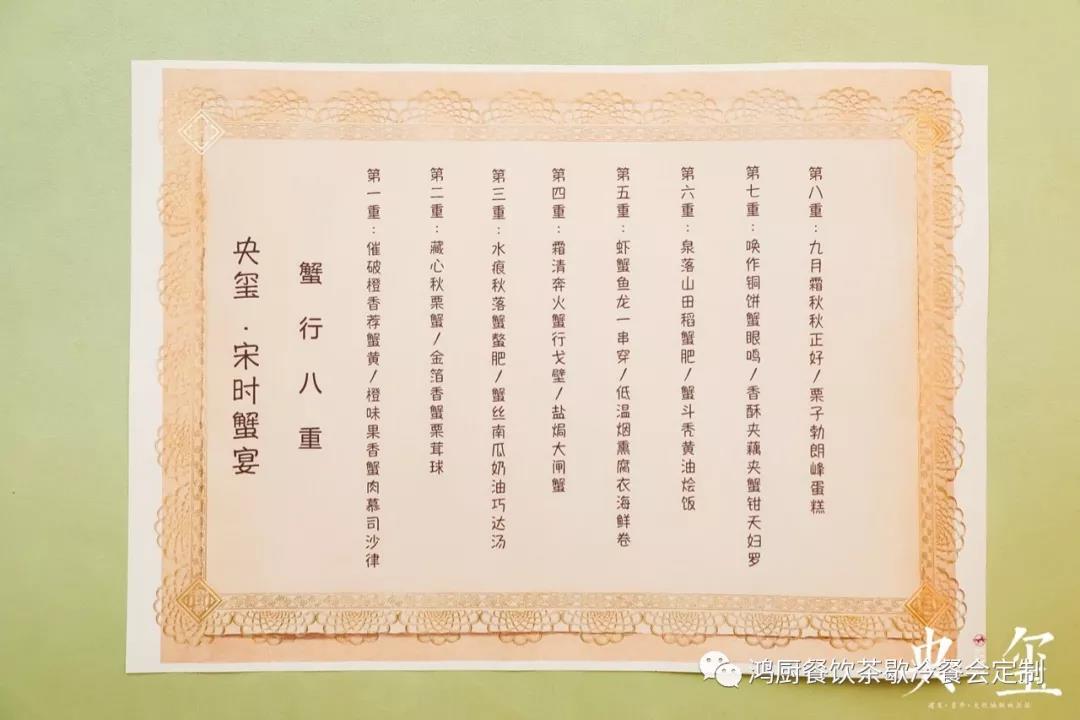 央玺·宋时蟹宴
蟹行八重
第一重：催破橙香荐蟹黄/橙味果香蟹肉慕司沙律
第二重：藏心秋栗蟹/金箔香蟹栗茸球
第三重：水痕秋落蟹螯肥/蟹丝南瓜奶油巧达汤
第四重：霜清奔火蟹行戈壁/盐焗大闸蟹
第五重：虾蟹鱼龙一串穿/低温烟熏腐衣海鲜卷
第六重：泉落山田稻蟹肥/蟹斗秃黄油烩饭
第七重：唤作铜饼蟹眼鸣/香酥夹藕夹蟹钳天妇罗
第八重：九月霜秋秋正好/栗子勃朗峰蛋糕
鸿厨餐饮茶歇冷餐会定制
央玺